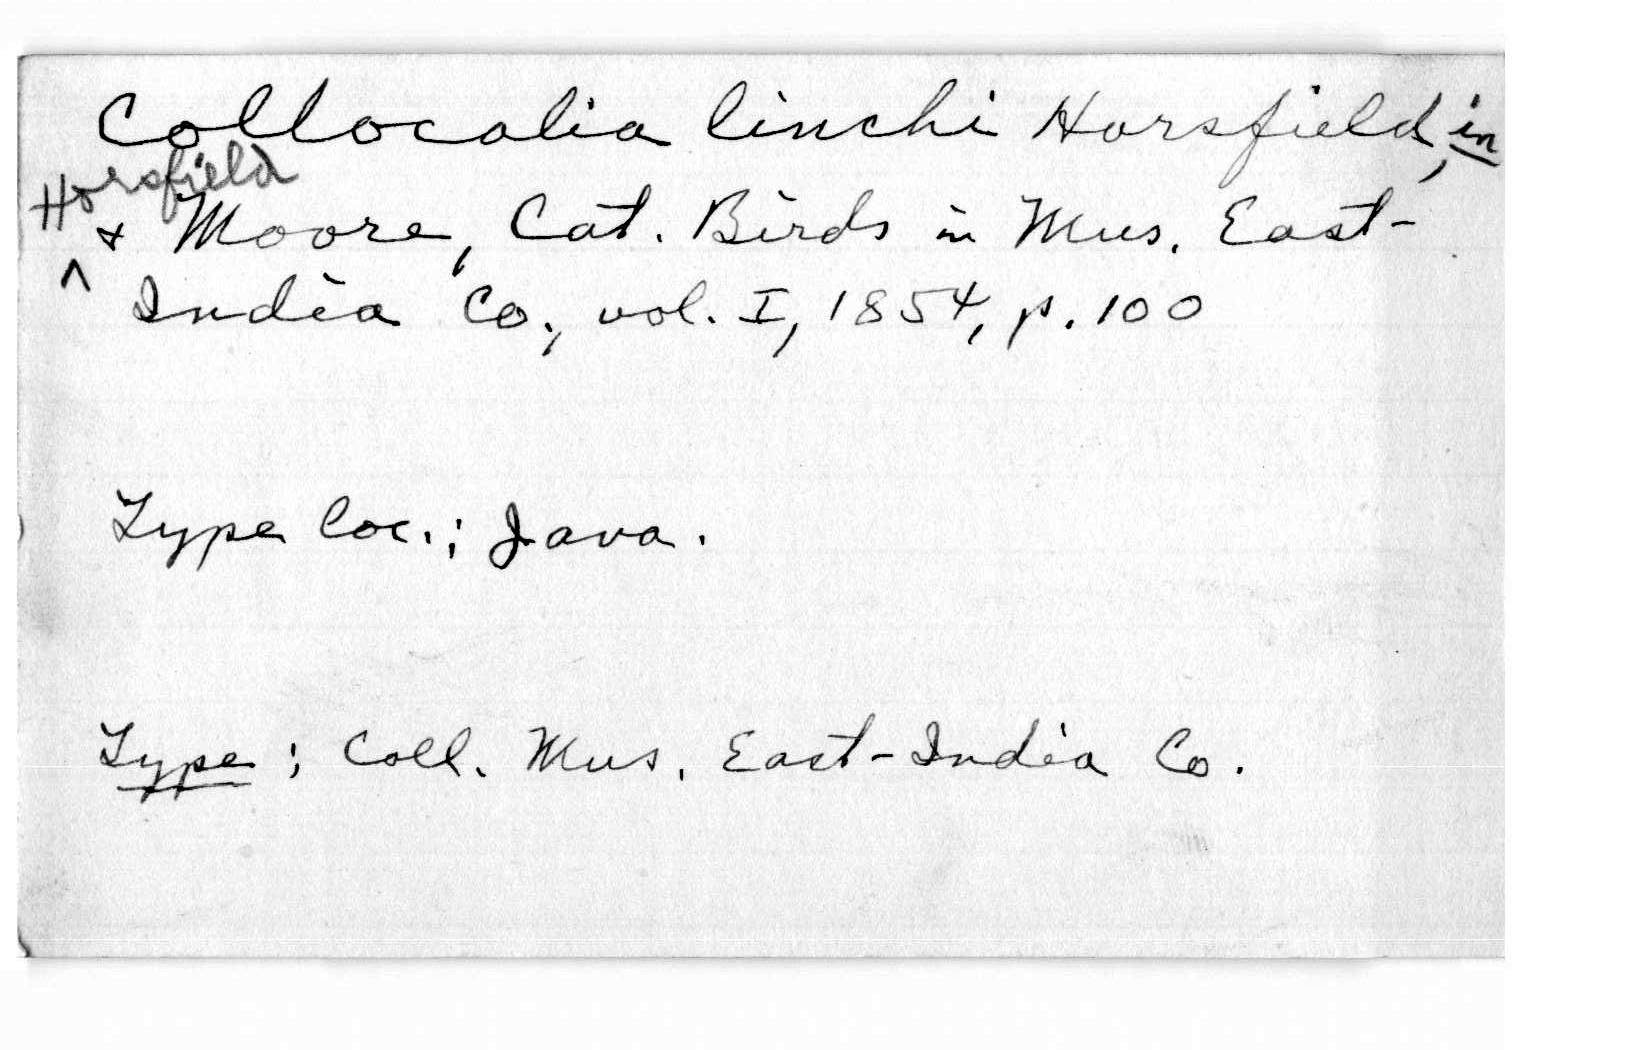 Collocalia linchi Horsfield, in
Horsfield
^ & Moore, Cat. Birds in Mus. East-
India Co., vol. I, 1854, p. 100
Type loc.; Java.
Type; Coll. Mus. East-India Co.